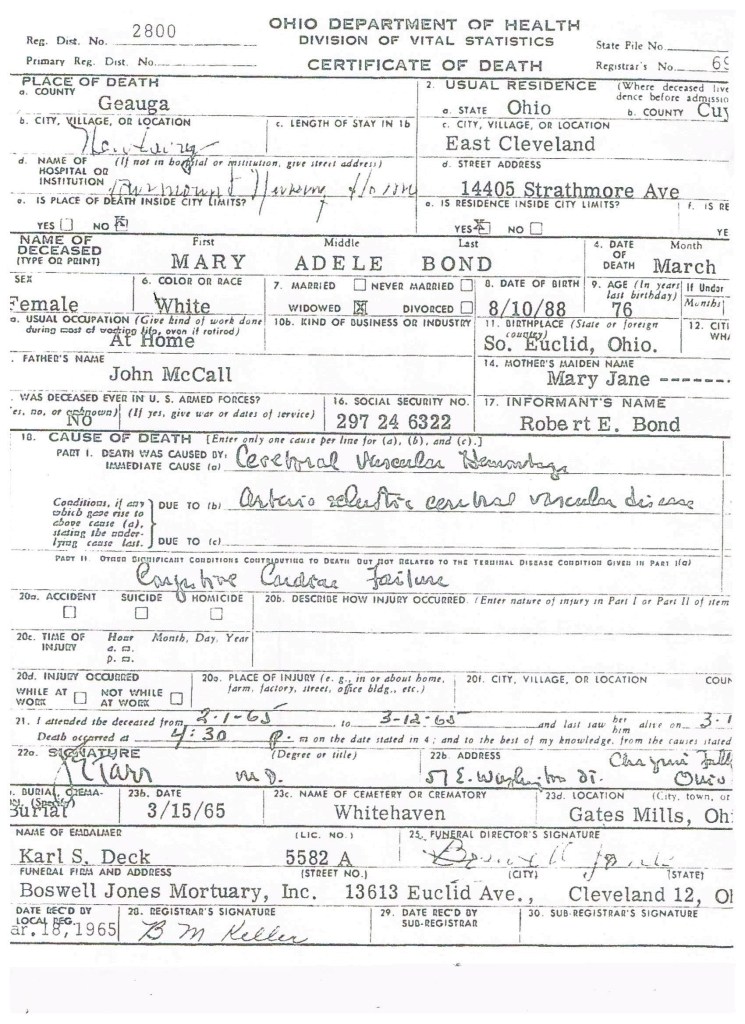 OHIO DEPARTMENT OF HEALTH
Reg. Dist. No. 2800 DIVISION OF VITAL STATISTICS State File No.
Primary Reg. Dist. No. CERTIFICATE OF DEATH Registrar's No. 69
PLACE OF DEATH 2. USUAL RESIDENCE (Where deceased live
a. COUNTY dence before admissio
Geauga a. STATE Ohio b. COUNTY Cuy
b. CITY, VILLAGE, OR LOCATION c. LENGTH OF STAY IN 1b c. CITY, VILLAGE, OR LOCATION
East Cleveland
d. NAME OF (If not in hospital or institution, give street address) d. STREET ADDRESS
HOSPITAL OR
INSTITUTION Nursing Home 14405 Strathmore Ave
e. IS PLACE OF DEATH INSIDE CITY LIMITS? e. IS RESIDENCE INSIDE CITY LIMITS? f. IS RE
YES NO X YES X NO YE
NAME OF First Middle Last 4. DATE Month
DECEASED OF
(TYPE OR PRINT) MARY ADELE BOND DEATH March
SEX 6. COLOR OR RACE 7. MARRIED NEVER MARRIED 8. DATE OF BIRTH 9. AGE (In years If Under
last birthday) Months
Female White WIDOWED X DIVORCED 8/10/88 76
a. USUAL OCCUPATION (Give kind of work done 10b. KIND OF BUSINESS OR INDUSTRY 11. BIRTHPLACE (State or foreign 12. CITI
during most of working life, even if retired) country) WHA
At Home So. Euclid, Ohio.
. FATHER'S NAME 14. MOTHER'S MAIDEN NAME
John McCall Mary Jane -------
. WAS DECEASED EVER IN U. S. ARMED FORCES? 16. SOCIAL SECURITY NO. 17. INFORMANT'S NAME
es, no, or unknown) (If yes, give war or dates of service)
NO 297 24 6322 Robert E. Bond
18. CAUSE OF DEATH [Enter only one cause per line for (a), (b), and (c).]
PART I. DEATH WAS CAUSED BY:
IMMEDIATE CAUSE (a) Cerebral Vascular Hemorrhage
Conditions, if any DUE TO (b) Arterio sclerotic cerebral vascular disease
which gave rise to
above cause (a),
stating the under-
lying cause last. DUE TO (c)
PART II. OTHER SIGNIFICANT CONDITIONS CONTRIBUTING TO DEATH BUT NOT RELATED TO THE TERMINAL DISEASE CONDITION GIVEN IN PART I(a)
Congestive Cardiac Failure
20a. ACCIDENT SUICIDE HOMICIDE 20b. DESCRIBE HOW INJURY OCCURRED. (Enter nature of injury in Part I or Part II of item
20c. TIME OF Hour Month, Day, Year
INJURY a. m.
p. m.
20d. INJURY OCCURRED 20e. PLACE OF INJURY (e. g., in or about home, 20f. CITY, VILLAGE, OR LOCATION COUN
WHILE AT NOT WHILE farm, factory, street, office bldg., etc.)
WORK AT WORK
21. I attended the deceased from 2-1-65 to 3-12-65 and last saw her him alive on 3-1
Death occurred at 4:30 P. m on the date stated in 4; and to the best of my knowledge, from the causes stated
22a. SIGNATURE (Degree or title) 22b. ADDRESS Chagrin Fall
M.D. 57 E. Washington St. Ohio
. BURIAL, CREMA- 23b. DATE 23c. NAME OF CEMETERY OR CREMATORY 23d. LOCATION (City, town, or
(Specify)
Burial 3/15/65 Whitehaven Gates Mills, Oh
NAME OF EMBALMER (LIC. NO.) 25. FUNERAL DIRECTOR'S SIGNATURE
Karl S. Deck 5582 A
FUNERAL FIRM AND ADDRESS (STREET NO.) (CITY) (STATE)
Boswell Jones Mortuary, Inc. 13613 Euclid Ave., Cleveland 12, O
DATE REC'D BY 28. REGISTRAR'S SIGNATURE 29. DATE REC'D BY 30. SUB-REGISTRAR'S SIGNATURE
LOCAL REG. SUB-REGISTRAR
ar. 18, 1965 B M Keller